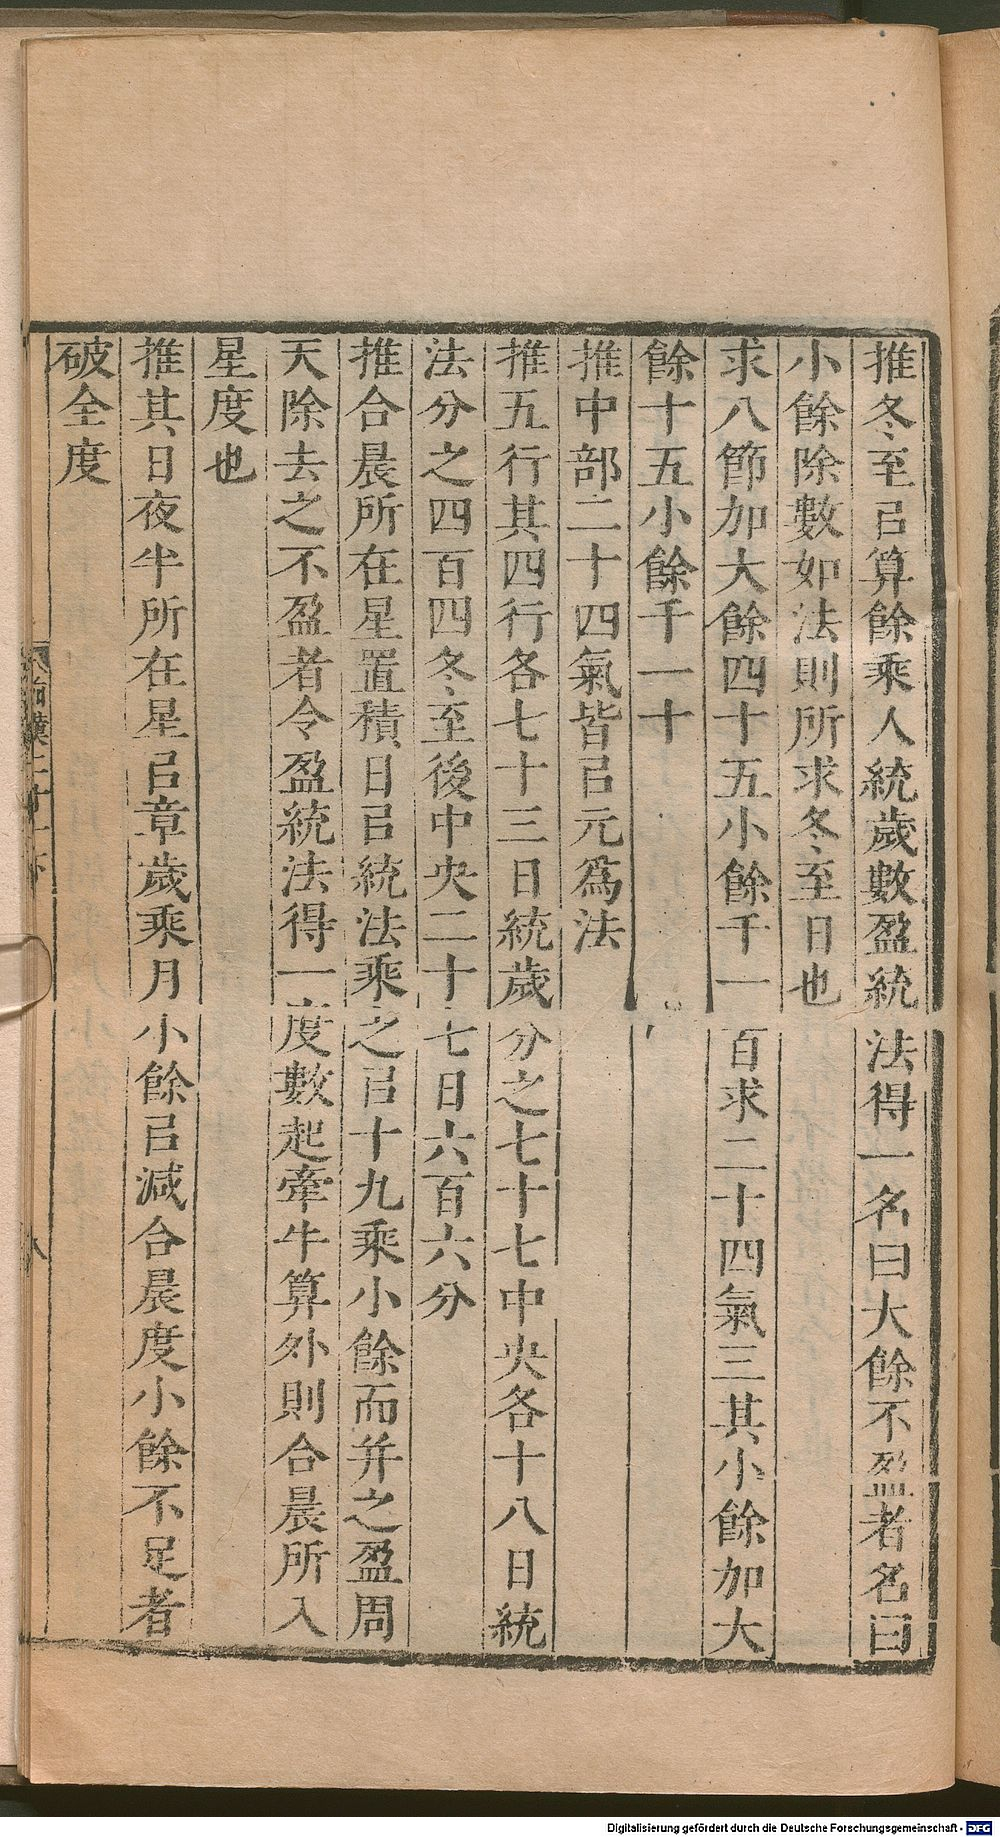 推冬至㠯算餘乘人統歲數盈統法得一名曰大餘不盈者名曰
小餘除數如法則所求冬至日也
求八節加大餘四十五小餘千一百求二十四氣三其小餘加大
餘十五小餘千一十
推中部二十四氣皆㠯元爲法
推五行其四行各七十三日統歲分之七十七中央各十八日統
法分之四百四冬至後中央二十七日六百六分
推合晨所在星置積日㠯統法乘之㠯十九乘小餘而并之盈周
天除去之不盈者令盈統法得一度數起牽牛算外則合晨所入
星度也
推其日夜半所在星㠯章歲乘月小餘㠯減合晨度小餘不足者
破全度
Digitalisierung gefördert durch die Deutsche Forschungsgemeinschaft - DFG